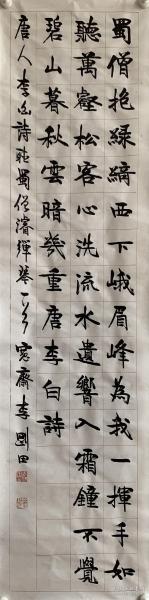 蜀僧抱綠綺西下峨眉峰為我一揮手如
聽萬壑松客心洗流水遺響入霜鐘不覺
碧山暮秋雲暗幾重唐李白詩
唐人李白詩聽蜀僧濬彈琴一首 寬齋李剛田